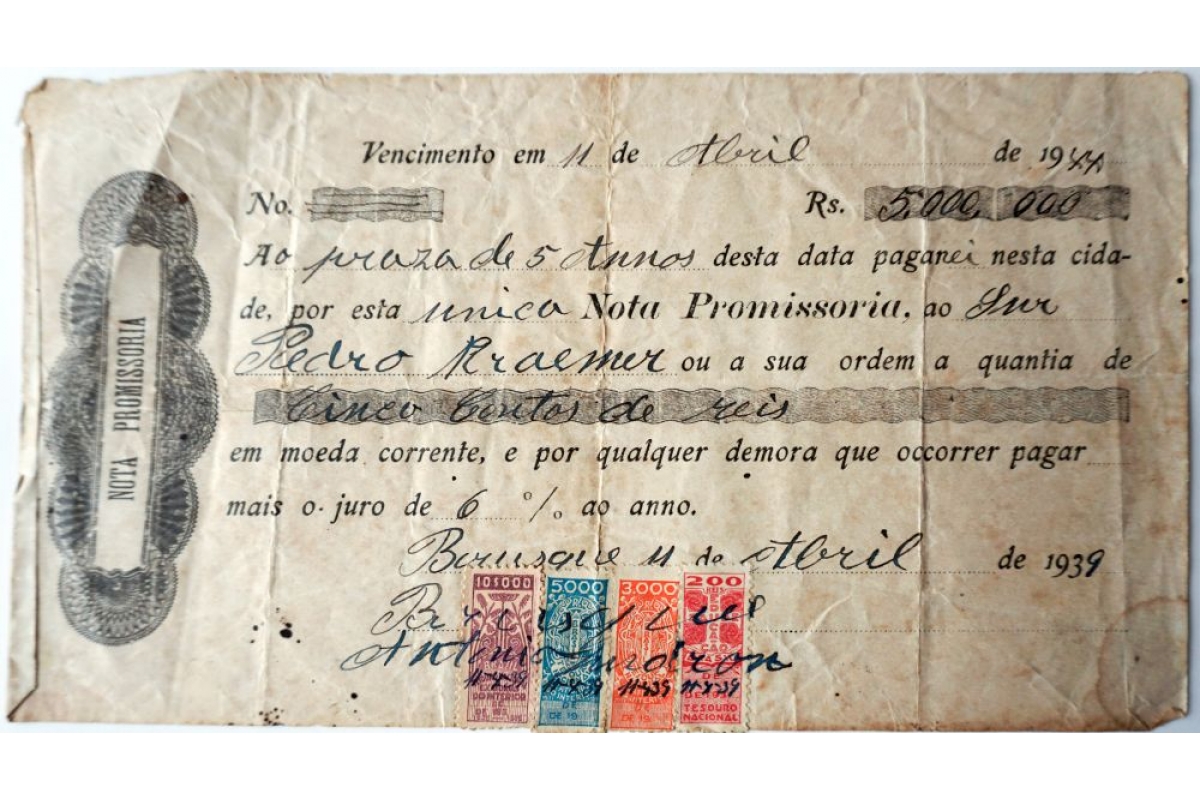 NOTA PROMISSORIA
Vencimento em 11 de Abril de 1944
No. Rs. 5.000.000
Ao praza de 5 Annos desta data paganei nesta cida-
de, por esta unica Nota Promissoria, ao Snr
Pedro Kraemer ou a sua ordem a quantia de
Cinco Contos de reis
em moeda corrente, e por qualquer demora que occorrer pagar
mais o juro de 6 % ao anno.
Brusque 11 de Abril de 1939
10$000 5.000 3.000 200
Brusque
Antonio
11-4-39 11-4-39 11-4-39 11-4-39
TESOURO
NACIONAL